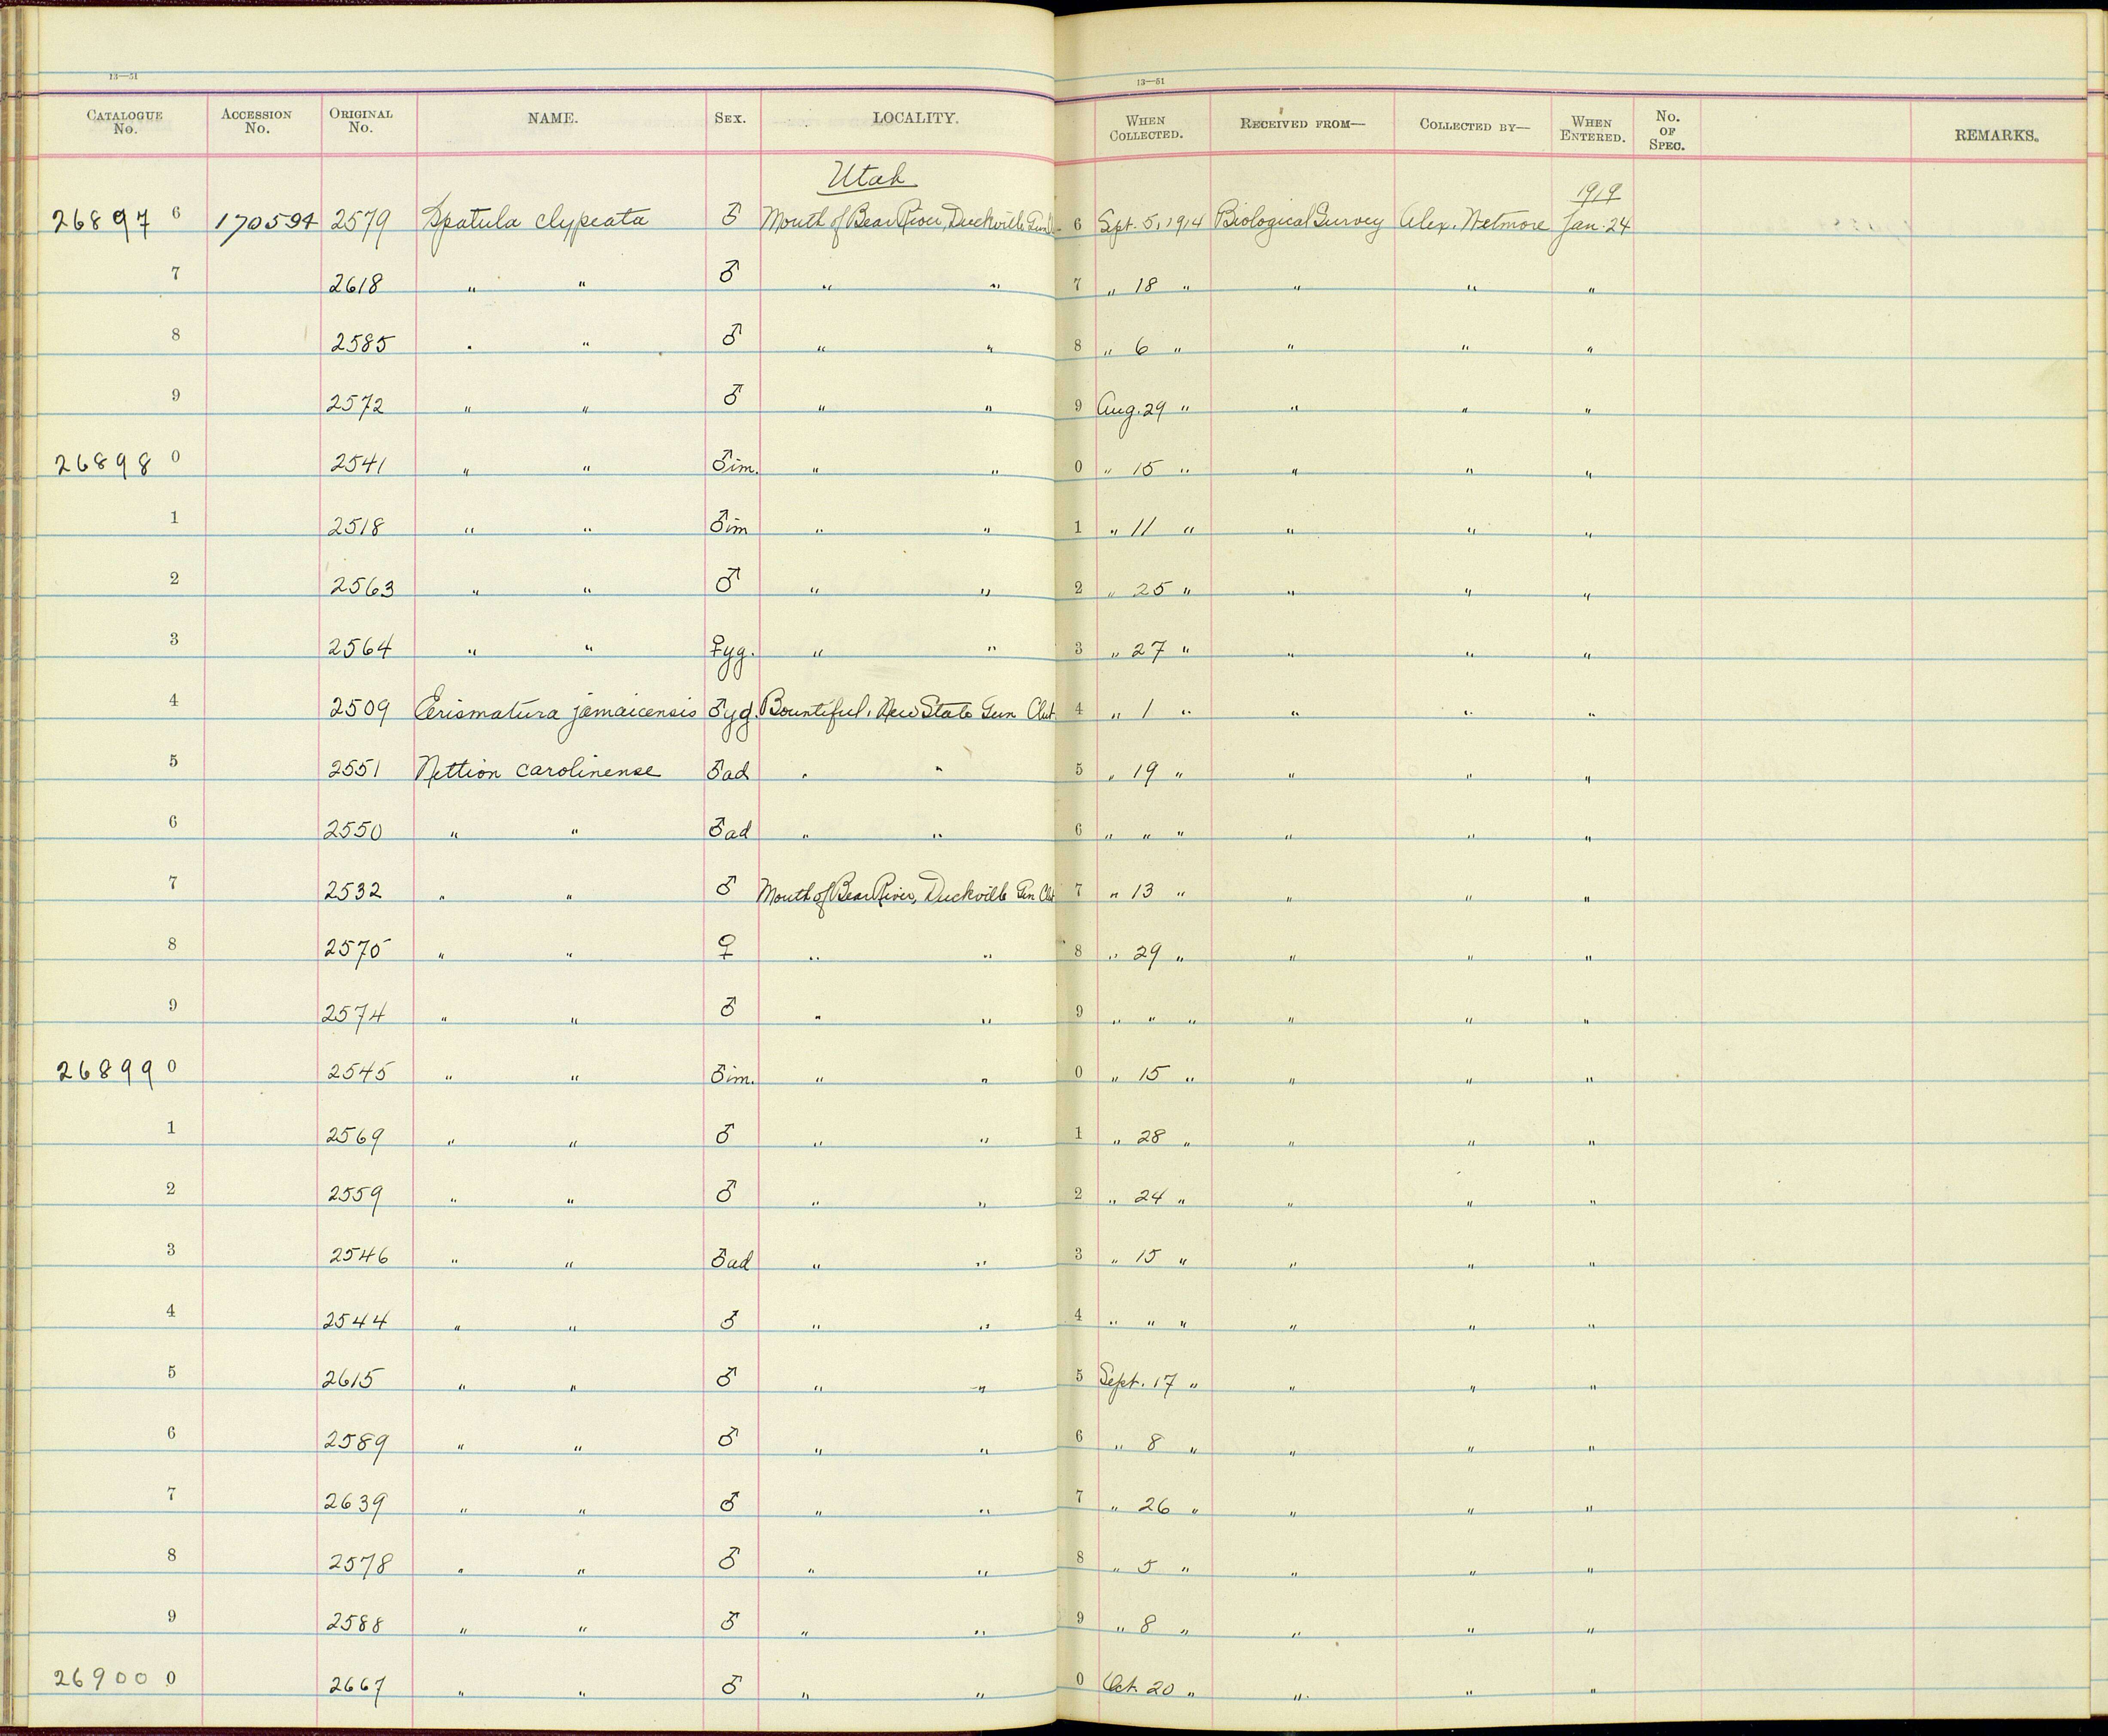 13—51
13—51
CATALOGUE No. ACCESSION No. ORIGINAL No. NAME. SEX. LOCALITY. WHEN COLLECTED. RECEIVED FROM— COLLECTED BY— WHEN ENTERED. No. OF SPEC. REMARKS.
Utah
1919
26897 6 170594 2579 Spatula clypeata ♂ Mouth of Bear River, Duckville Gun 6 Sept. 5, 1914 Biological Survey Alex. Wetmore Jan. 24
7 2618 " " ♂ " " 7 " 18 " " " "
8 2585 " " ♂ " " 8 " 6 " " " "
9 2572 " " ♂ " " 9 Aug. 29 " " " "
26898 0 2541 " " ♂im. " " 0 " 15 " " " "
1 2518 " " ♂im " " 1 " 11 " " " "
2 2563 " " ♂ " " 2 " 25 " " " "
3 2564 " " ♀yg. " " 3 " 27 " " " "
4 2509 Erismatura jamaicensis ♂yg. Bountiful, New State Gun Club 4 " 1 " " " "
5 2551 Nettion carolinense ♂ad " " 5 " 19 " " " "
6 2550 " " ♂ad " " 6 " " " " " "
7 2532 " " ♂ Mouth of Bear River, Duckville Gun Club 7 " 13 " " " "
8 2575 " " ♀ " " 8 " 29 " " " "
9 2574 " " ♂ " " 9 " " " " " "
26899 0 2545 " " ♂im. " " 0 " 15 " " " "
1 2569 " " ♂ " " 1 " 28 " " " "
2 2559 " " ♂ " " 2 " 24 " " " "
3 2546 " " ♂ad " " 3 " 15 " " " "
4 2544 " " ♂ " " 4 " " " " " "
5 2615 " " ♂ " " 5 Sept. 17 " " " "
6 2589 " " ♂ " " 6 " 8 " " " "
7 2639 " " ♂ " " 7 " 26 " " " "
8 2578 " " ♂ " " 8 " 5 " " " "
9 2588 " " ♂ " " 9 " 8 " " " "
26900 0 2667 " " ♂ " " 0 Oct. 20 " " " "